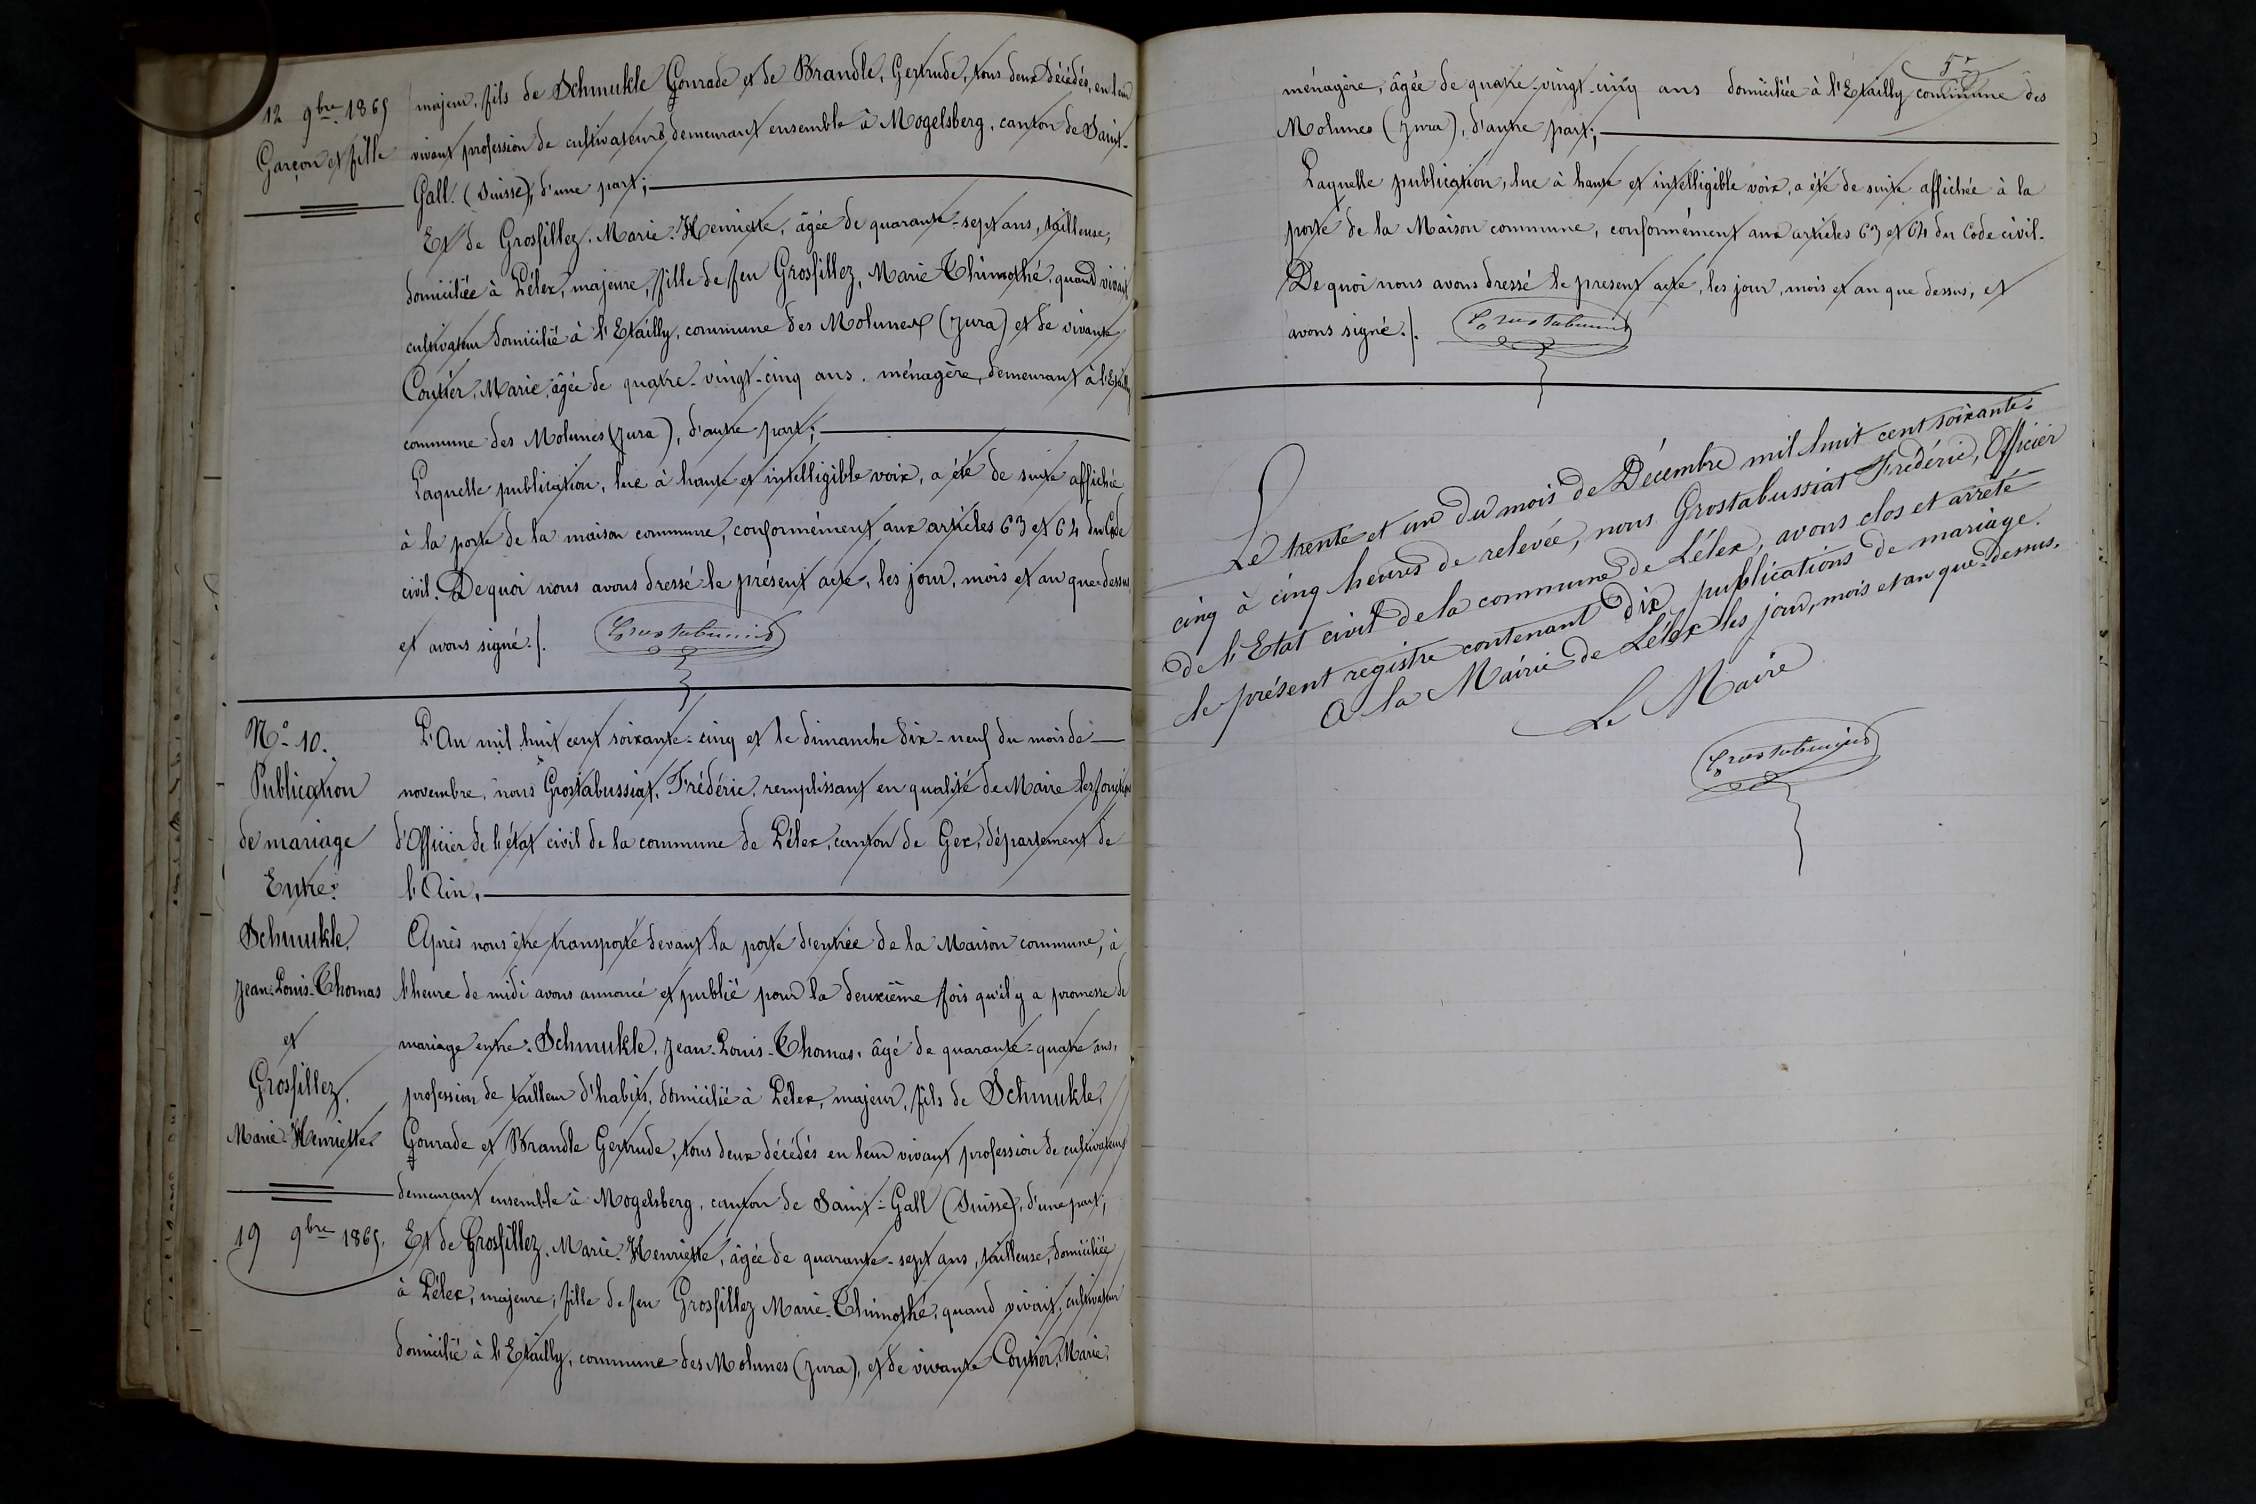 12 9bre 1865
Garçon et fille
majeur, fils de Schmukle Gonrade et de Brandle, Gertrude, tous deux décédés, en leur
vivant profession de cultivateurs demeurant ensemble à Mogelsberg, canton de Saint-
Gall (Suisse), d'une part;
Et de Grosfillez, Marie-Henriette, âgée de quarante-sept ans, tailleuse,
domiciliée à Lélex, majeure, fille de feu Grosfillez, Marie-Thimothé, quand vivait
cultivateur domicilié à l'Etailly, commune des Molunes (Jura) et de vivante
Coutier, Marie, âgée de quatre-vingt-cinq ans, ménagère, demeurant à l'Etailly
commune des Molunes (Jura), d'autre part;
Laquelle publication, lue à haute et intelligible voix, a été de suite affichée
à la porte de la maison commune, conformément aux articles 63 et 64 du Code
civil. De quoi nous avons dressé le présent acte, les jour, mois et an que dessus
et avons signé./.
Grostabussiat
N° 10.
Publication
de mariage
Entre:
Schmukle,
Jean-Louis-Thomas
et
Grosfillez,
Marie-Henriette
19 9bre 1865.
L'An mil huit cent soixante-cinq et le dimanche dix-neuf du mois de
novembre, nous Grostabussiat, Frédéric, remplissant en qualité de Maire les fonctions
d'Officier de l'état civil de la commune de Lélex, canton de Gex, département de
l'Ain,
Après nous être transporté devant la porte d'entrée de la Maison commune, à
l'heure de midi avons annoncé et publié pour la deuxième fois qu'il y a promesse de
mariage entre: Schmukle, Jean-Louis-Thomas, âgé de quarante-quatre ans,
profession de tailleur d'habits, domicilié à Lélex, majeur, fils de Schmukle,
Gonrade et Brandle Gertrude, tous deux décédés en leur vivant profession de cultivateurs
demeurant ensemble à Mogelsberg, canton de Saint-Gall (Suisse), d'une part;
Et de Grosfillez, Marie-Henriette, âgée de quarante-sept ans, tailleuse, domiciliée
à Lélex, majeure, fille de feu Grosfillez Marie-Thimothé, quand vivait, cultivateur
domicilié à l'Etailly, commune des Molunes (Jura), et de vivante Coutier, Marie,
ménagère, âgée de quatre-vingt-cinq ans domiciliée à l'Etailly commune des
Molunes (Jura), d'autre part;
Laquelle publication, lue à haute et intelligible voix, a été de suite affichée à la
porte de la Maison commune, conformément aux articles 63 et 64 du Code civil.
De quoi nous avons dressé le present acte, les jour, mois et an que dessus, et
avons signé./.
Grostabussiat
Le trente et un du mois de Décembre mil huit cent soixante-
cinq à cinq heures de relevée, nous Grostabussiat Frédéric, Officier
de l'Etat civil de la commune de Lélex, avons clos et arrêté
le présent registre contenant dix publications de mariage.
A la Mairie de Lélex les jour, mois et an que dessus.
Le Maire
Grostabussiat